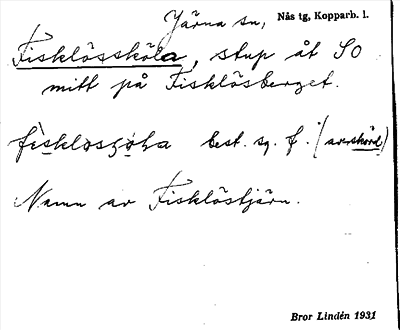 Järna sn, Nås tg, Kopparb. l.
Fisklössköla, stup åt SO
mitt på Fisklösberget.
best. sg. f.
Namn av Fisklöstjärn.
Bror Lindén 1931